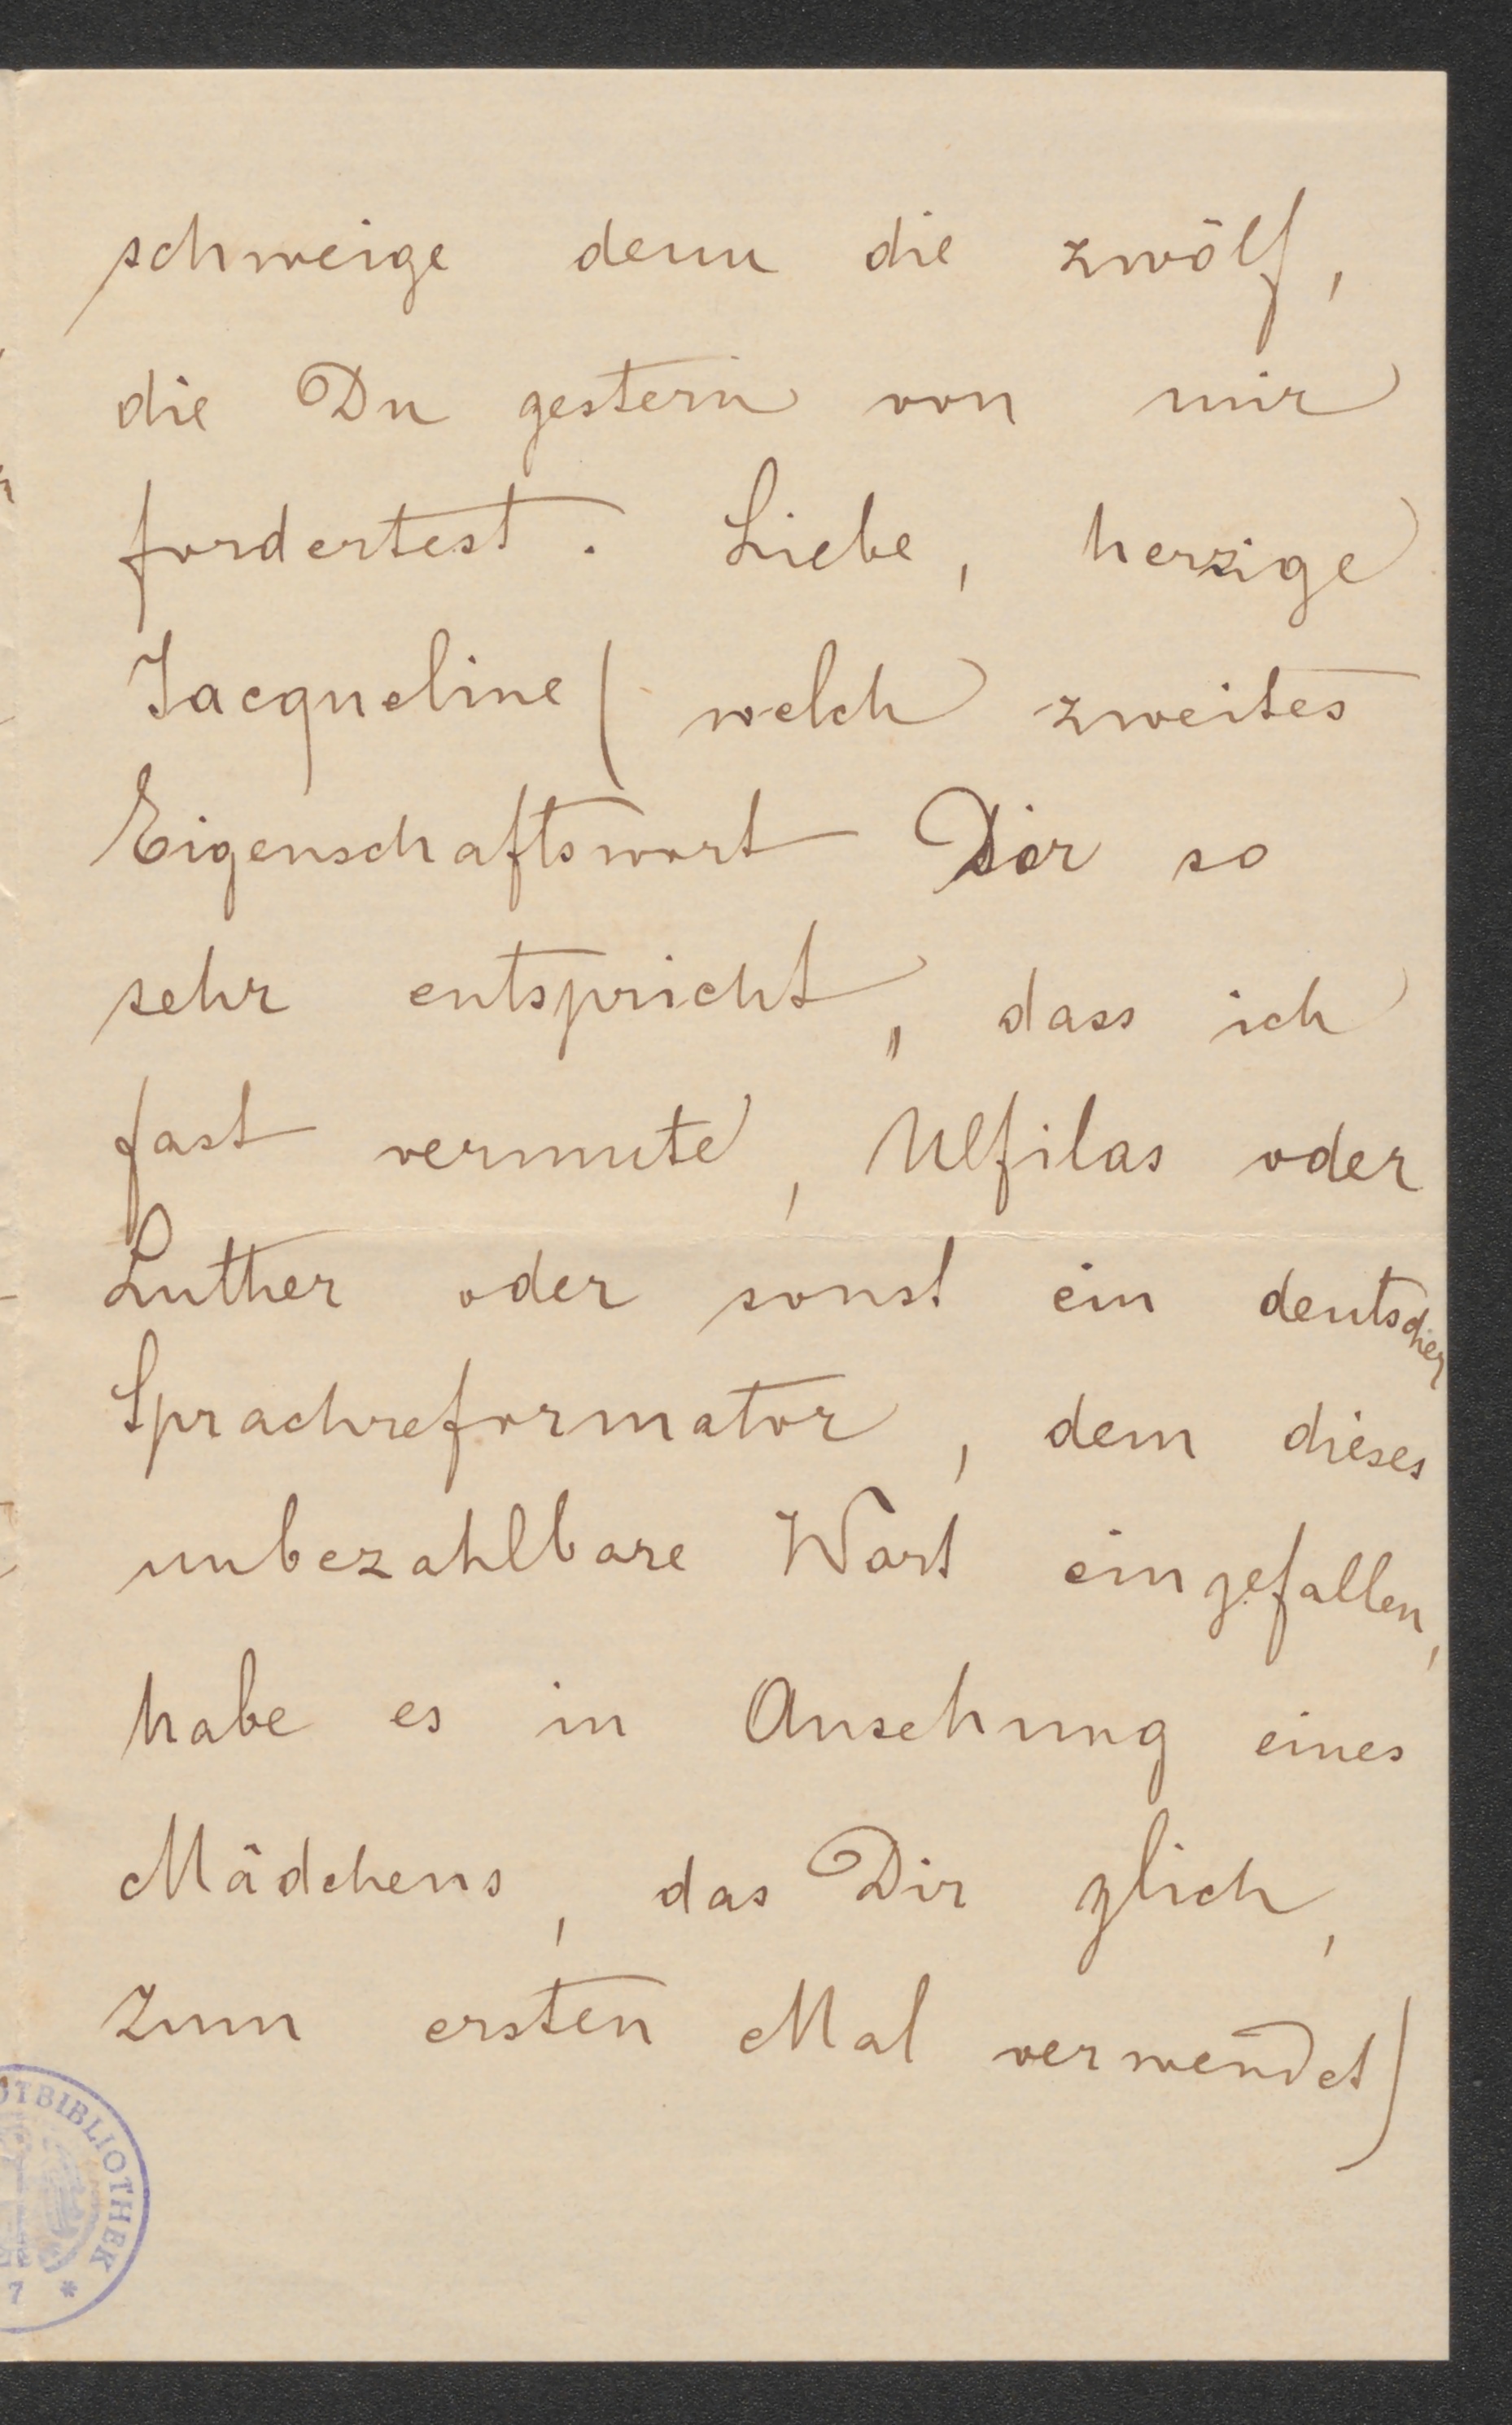 schweige denn die zwölf,
die Du gestern von mir
fordertest. Liebe, herzige
Jacqueline (welch zweites
Eigenschaftswort Dir so
sehr entspricht, dass ich
fast vermute, Ulfilas oder
Luther oder sonst ein deutscher
Sprachreformator, dem dieses
unbezahlbare Wort eingefallen,
habe es in Ansehung eines
Mädchens, das Dir glich,
zum ersten Mal verwendet)
TBIBLIOTHEK
7 *